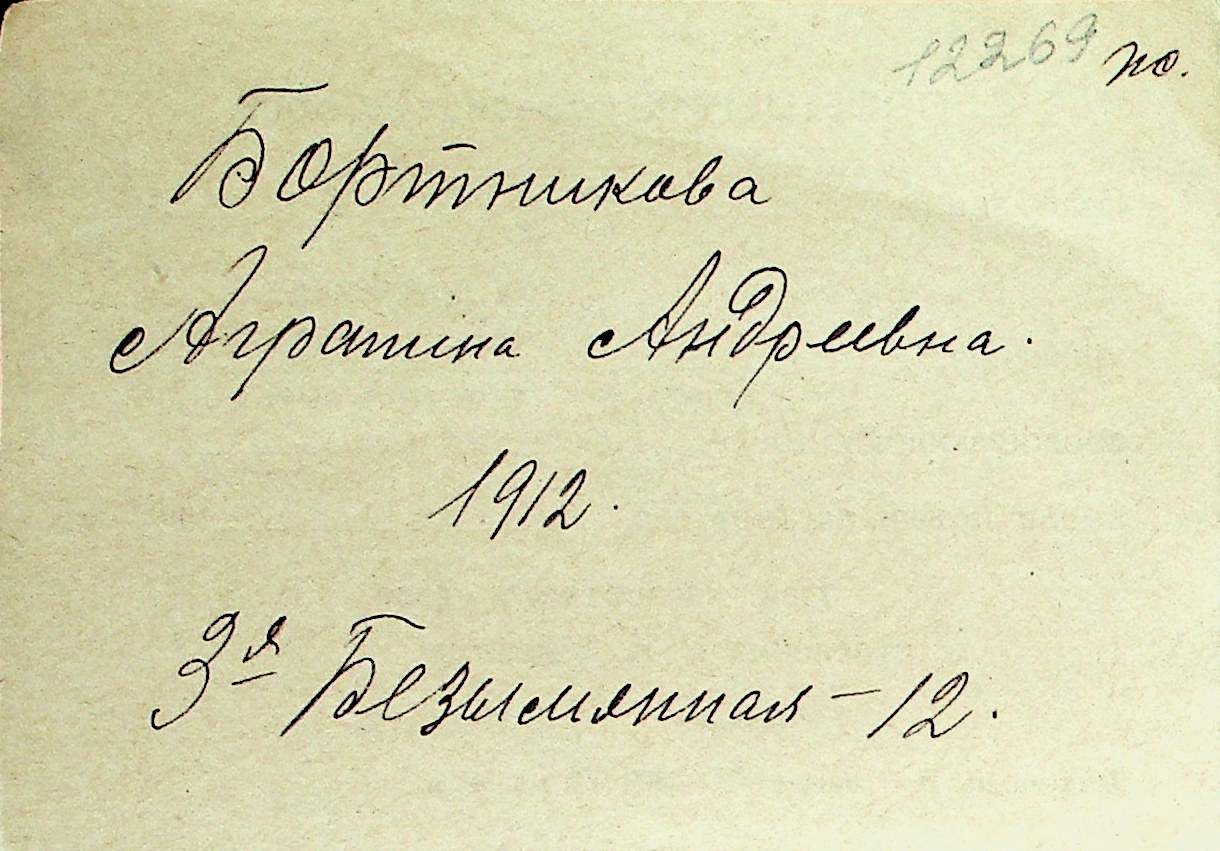 12269 по.
Бортникова
Аграпина Андреевна.
1912.
3я Безымянная – 12.